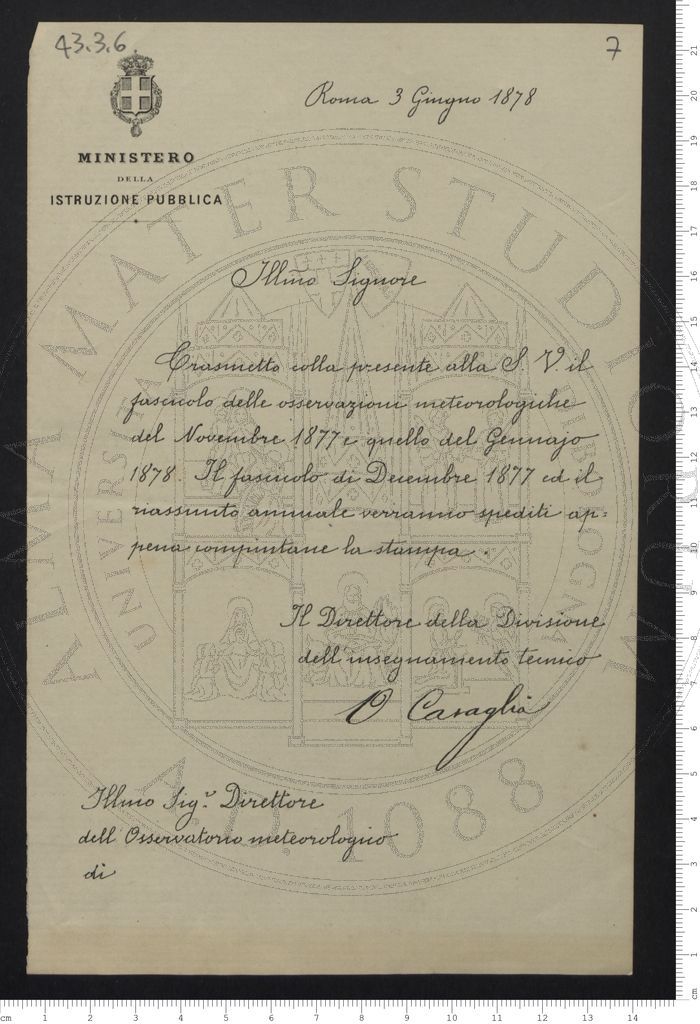 43.3.6
7
Roma 3 Giugno 1878
MINISTERO
DELLA
ISTRUZIONE PUBBLICA
Illmo Signore
Trasmetto colla presente alla S. V. il
fascicolo delle osservazioni meteorologiche
del Novembre 1877 e quello del Gennajo
1878. Il fascicolo di Decembre 1877 ed il
riassunto annuale verranno spediti ap=
pena compiutane la stampa.
Il Direttore della Divisione
dell'insegnamento tecnico
O Casaglia
Illmo Sigr. Direttore
dell'Osservatorio meteorologico
di
ALMA MATER STUDIORUM
UNIVERSITÀ DI BOLOGNA
A.D. 1088
cm 1 2 3 4 5 6 7 8 9 10 11 12 13 14
cm 1 2 3 4 5 6 7 8 9 10 11 12 13 14 15 16 17 18 19 20 21